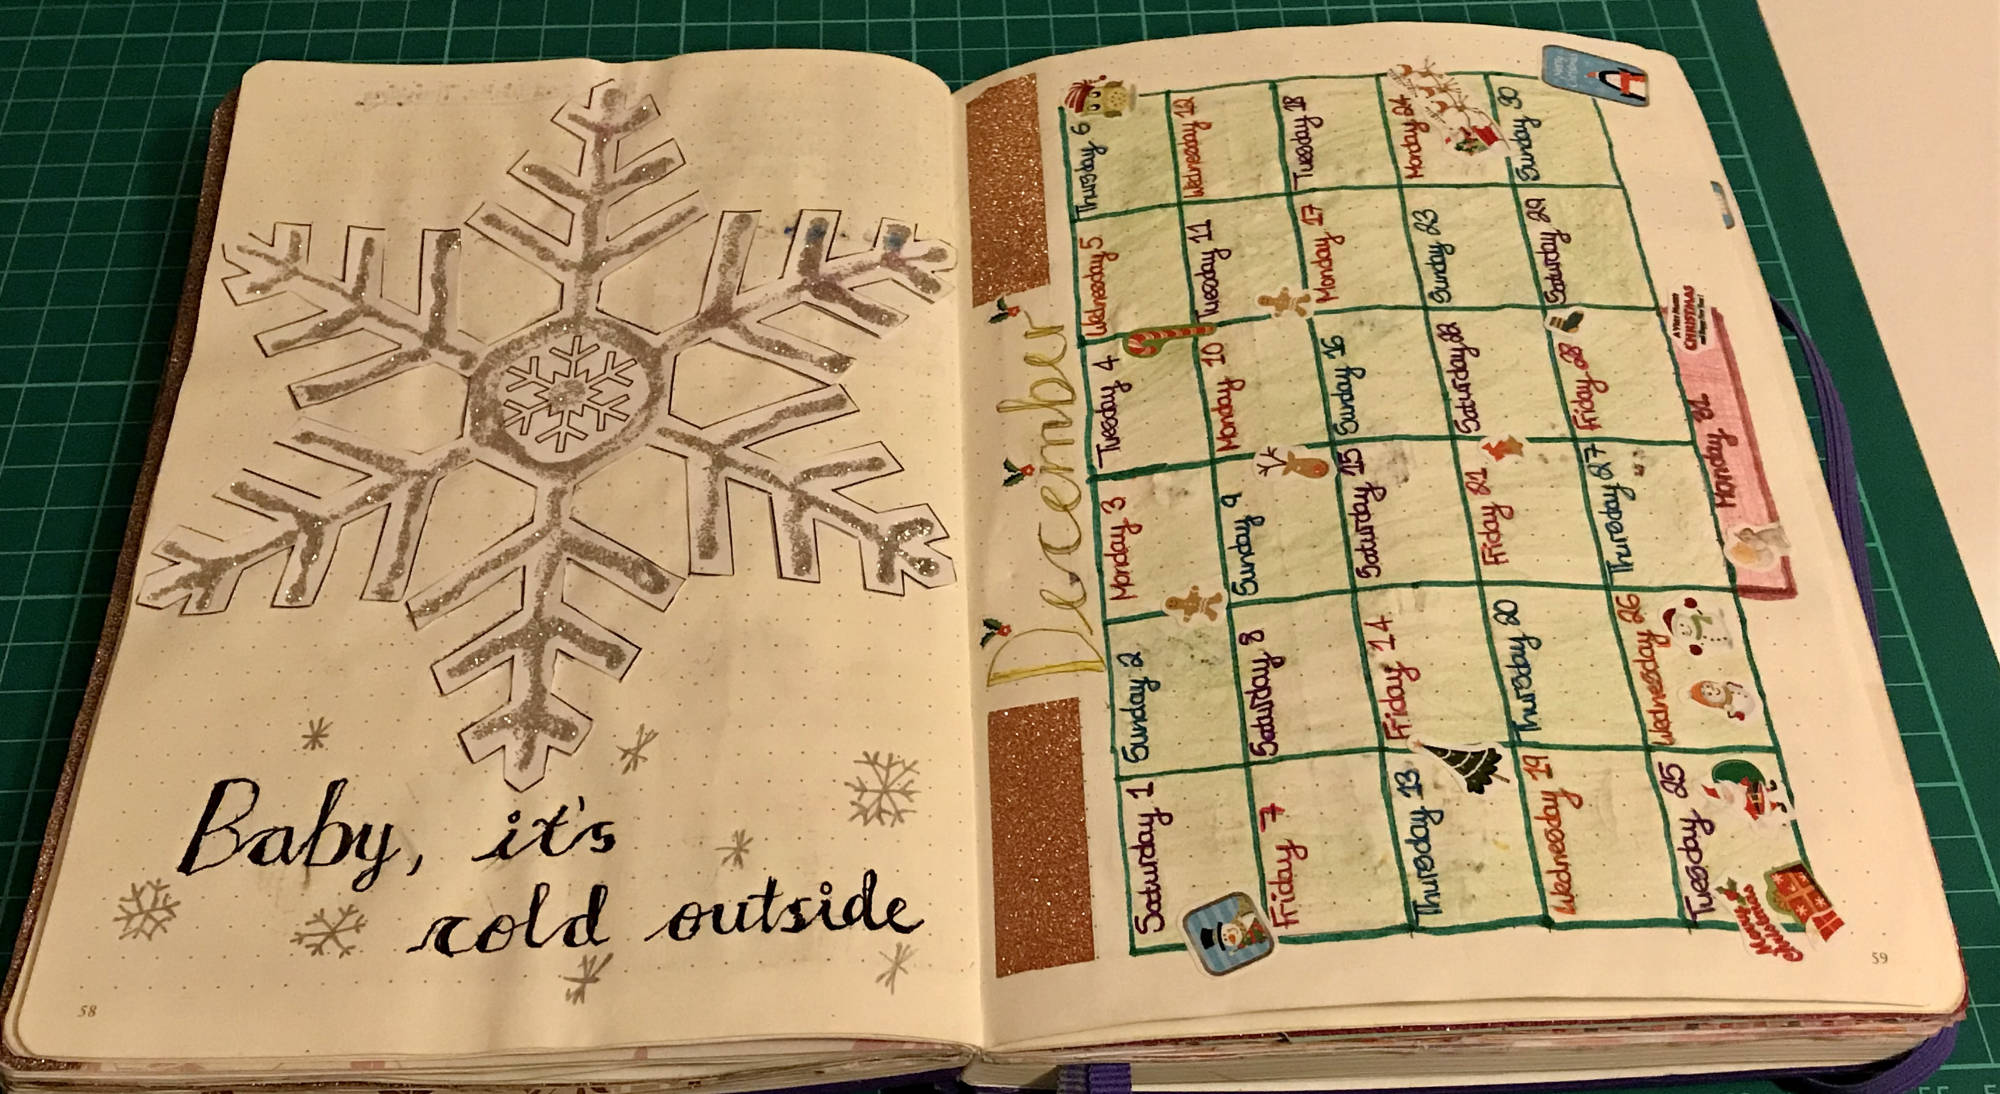 Baby, it's
cold outside
58
December
Saturday 1
Sunday 2
Monday 3
Tuesday 4
Wednesday 5
Thursday 6
Friday 7
Saturday 8
Sunday 9
Monday 10
Tuesday 11
Wednesday 12
Thursday 13
Friday 14
Saturday 15
Sunday 16
Monday 17
Tuesday 18
Wednesday 19
Thursday 20
Friday 21
Saturday 22
Sunday 23
Monday 24
Tuesday 25
Wednesday 26
Thursday 27
Friday 28
Saturday 29
Sunday 30
Monday 31
CHRISTMAS
Merry
Christmas
59